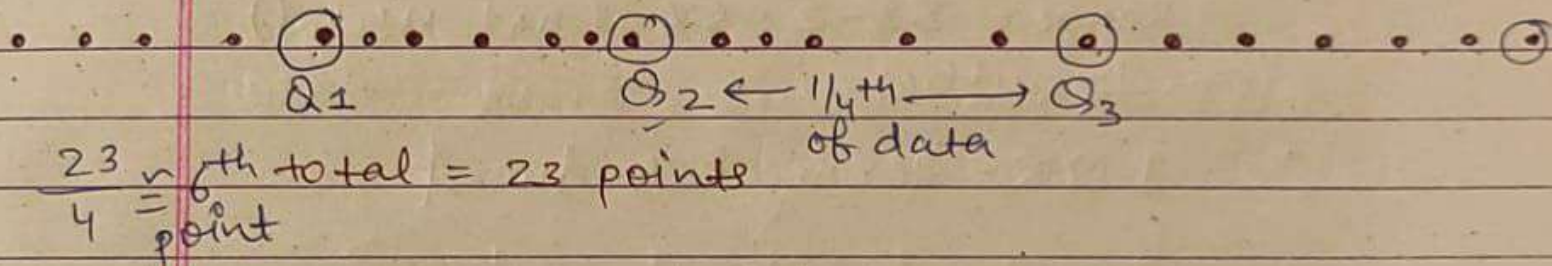 Q1 Q2 ← 1/4th → Q3
of data
23/4 ≈ 6th point
total = 23 points